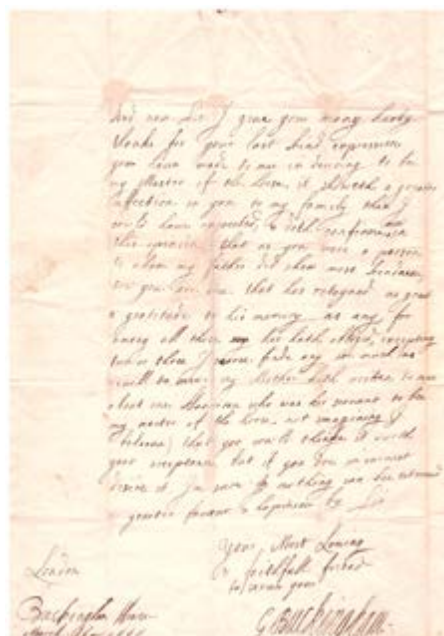 And now Sir I give you many harty
thanks for your last kind expressions
you have made to me in desiring to be
my Master of the horse, it sheweth a greater
affection in you to my family than I
could have expected, & doth confirme me in
this opinion that as you were a person
to whom my father did shew most kindness
so you are one that has retayned as great
a gratitude to his memory as any, for
among all those he hath obliged, excepting
two or three I finde any so much as
civill to mee, my Mother hath written to mee
about one who was his servant to be
my master of the horse, not imagining I
beleeve that you would thinke it worth
your acceptance but if you doe in earnest
desire it I'm sure nothing can be
greater to by Sir
Your Most Loving
& faithfull friend
to serve you
London
Buckingham
GBuckingham